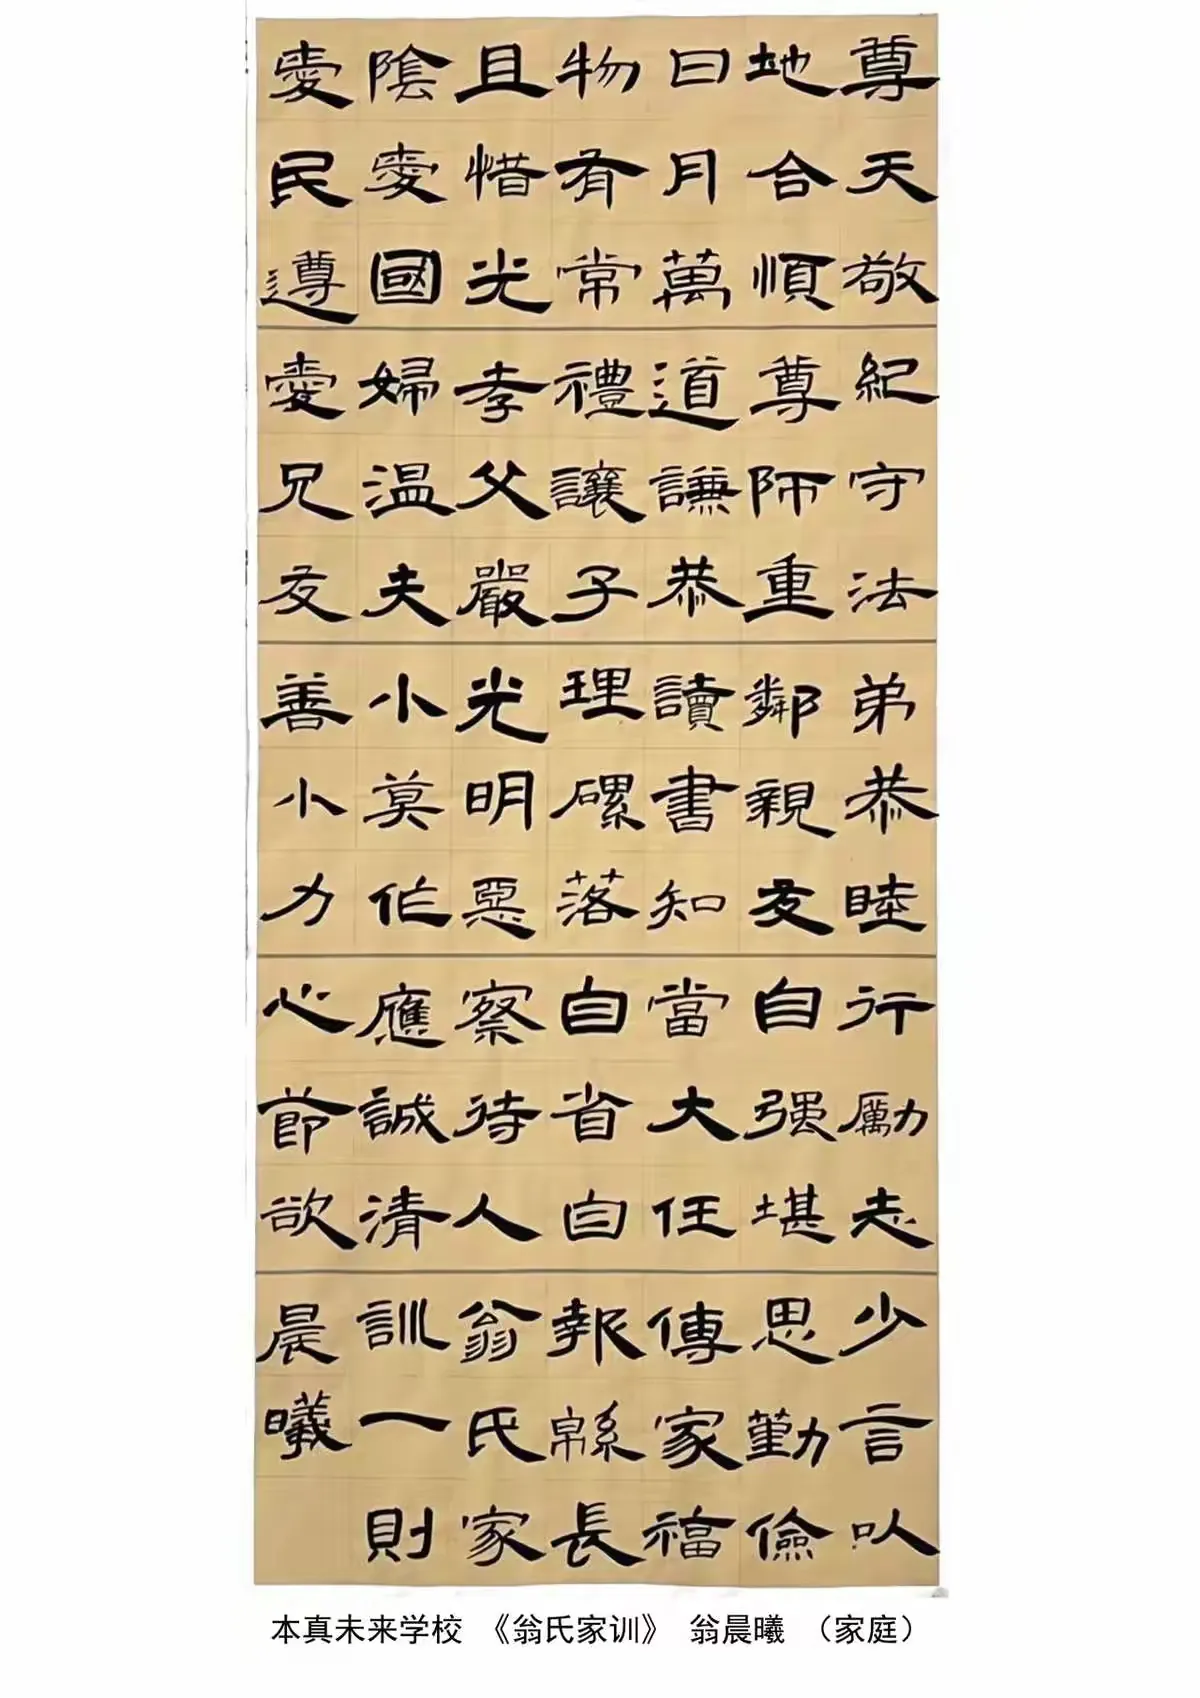 尊天敬
地合順
日月萬
物有常
且惜光
陰愛國
愛民遵
紀守法
尊師重
道謙恭
禮讓子
孝父嚴
婦温夫
愛兄友
弟恭睦
鄰親友
讀書知
理磥落
光明惡
小莫作
善小力
行勵志
自强堪
當大任
自省自
察待人
應誠清
心節欲
少言以
思勤儉
傳家福
報緜長
翁氏家
訓一則
晨曦
本真未来学校 《翁氏家训》 翁晨曦 （家庭）